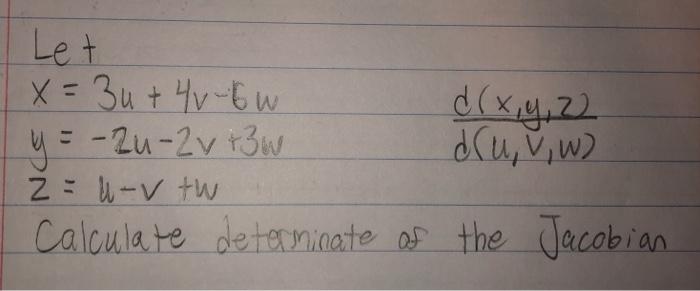 Let
x = 3u + 4v - 6w
y = -2u - 2v + 3w
z = u - v + w
d(x,y,z)
d(u,v,w)
Calculate determinate of the Jacobian